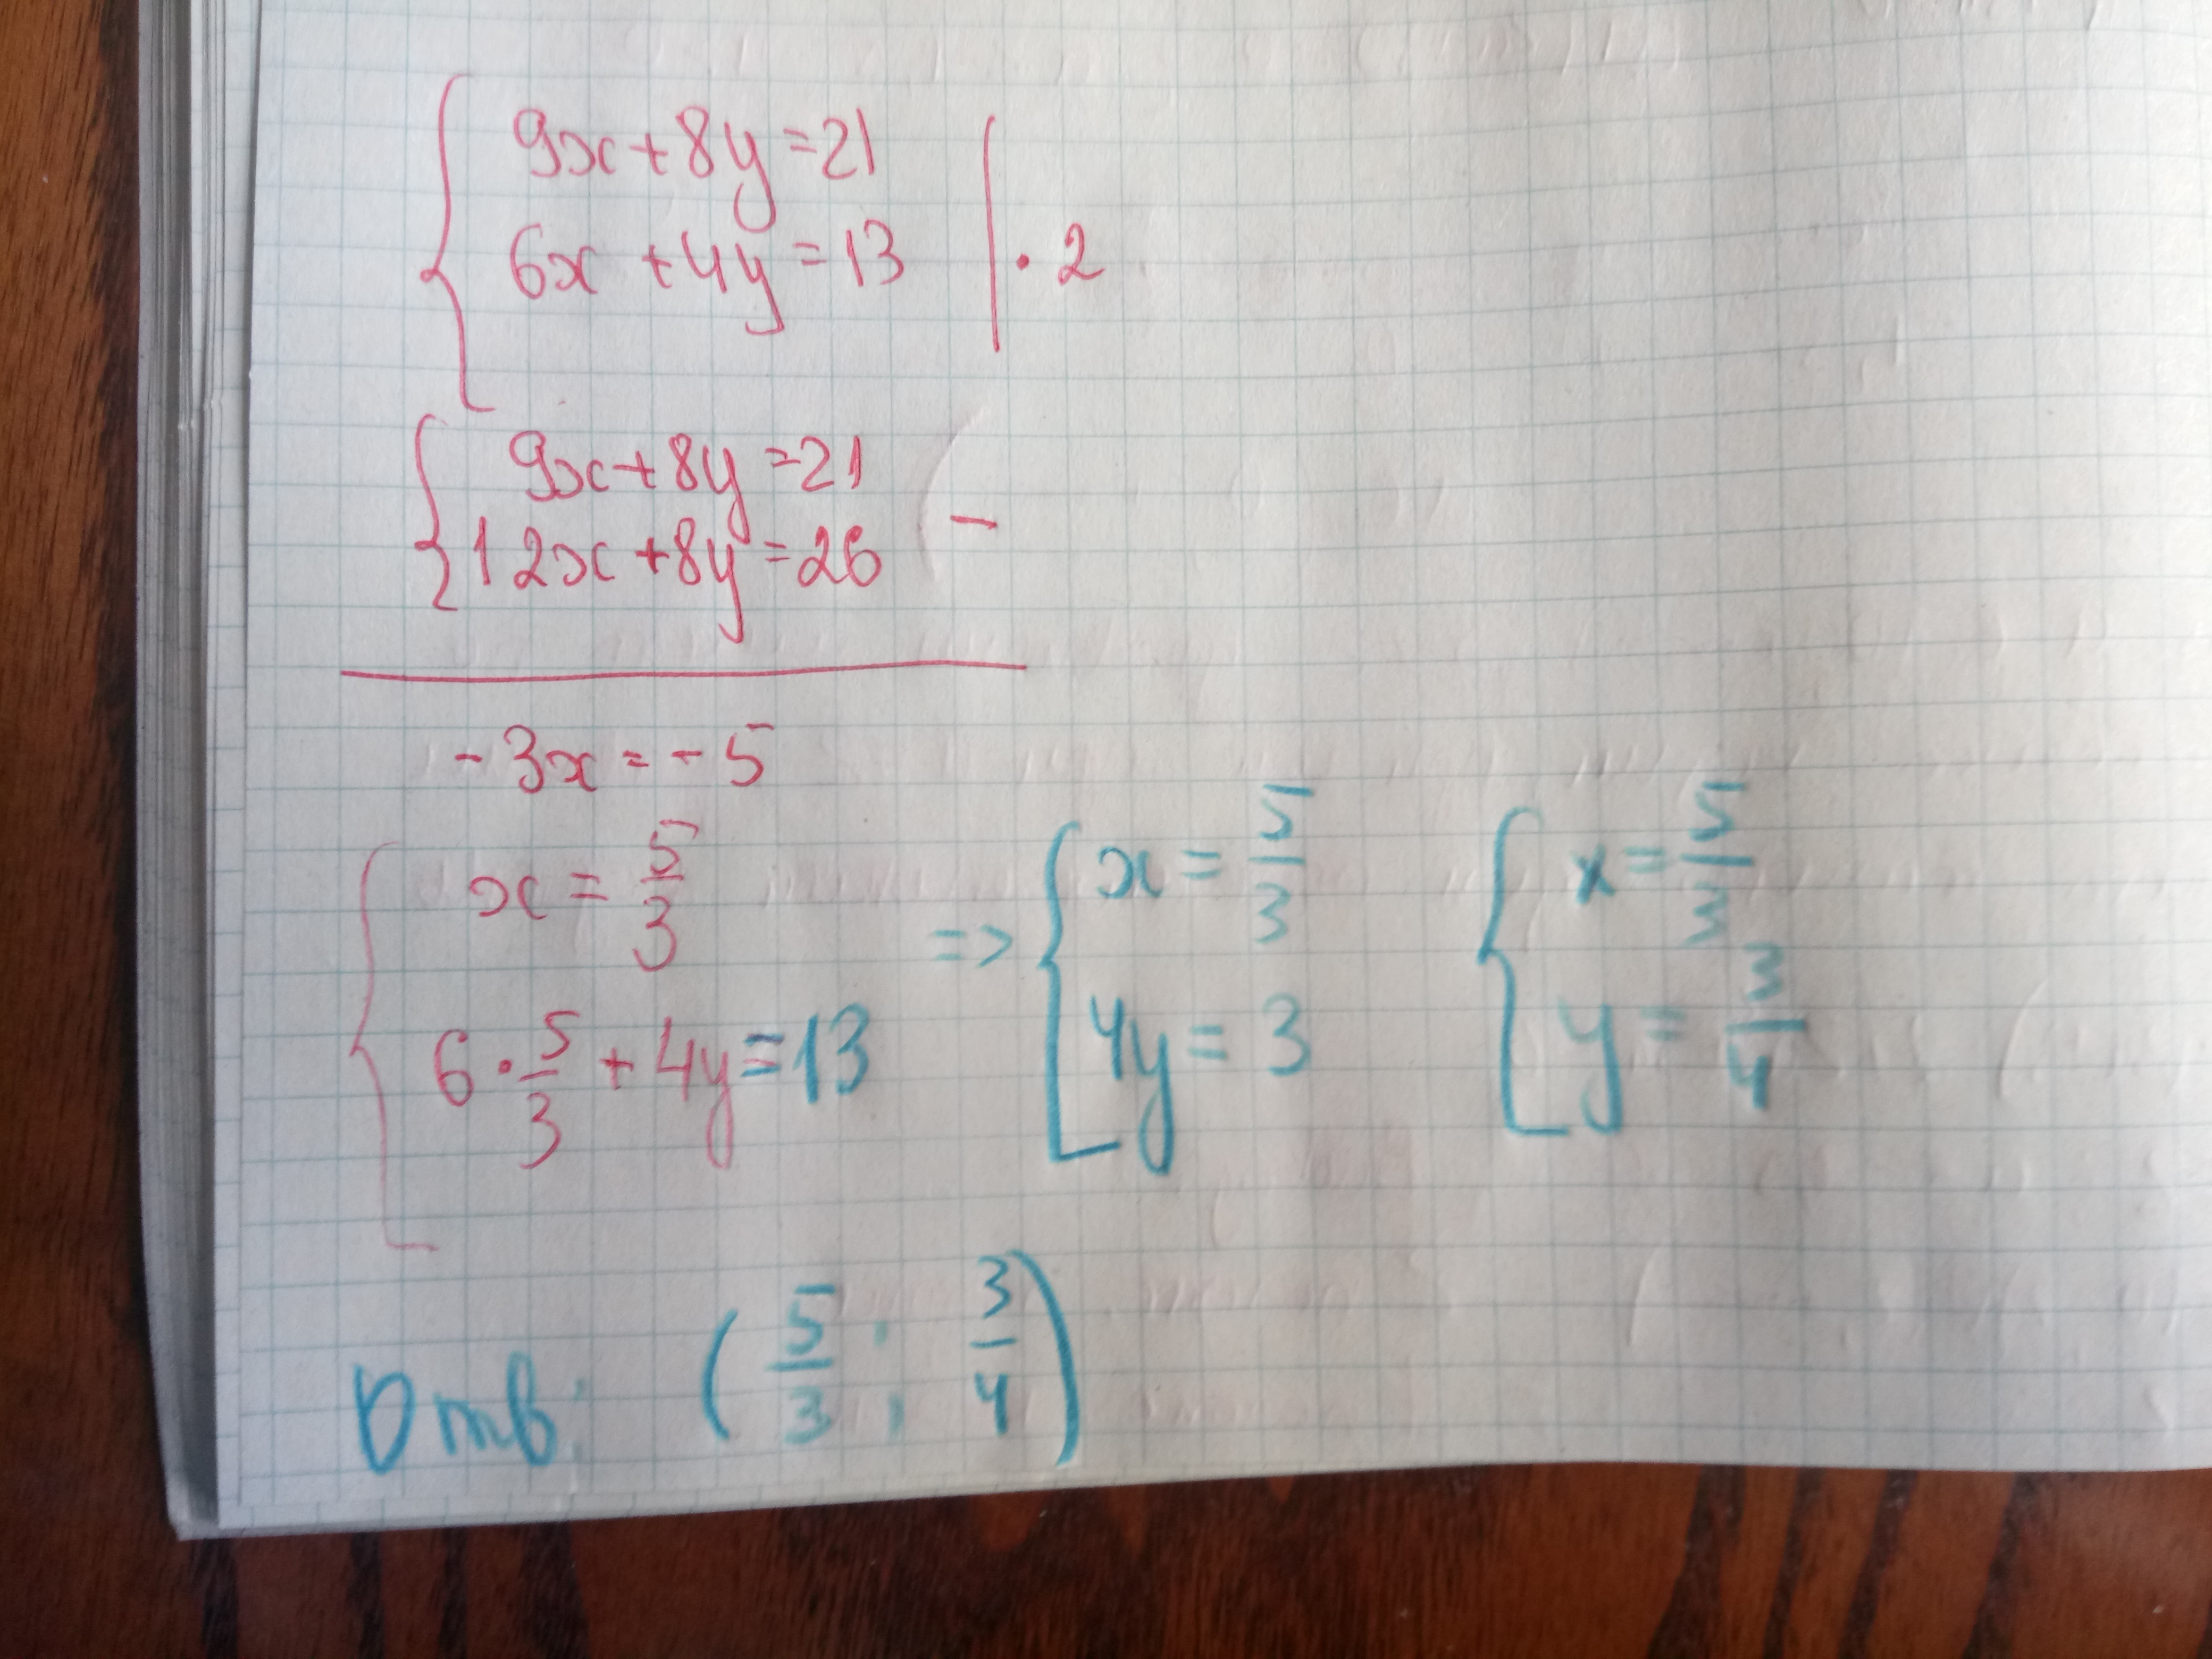 9x+8y=21
6x+4y=13 | · 2
9x+8y=21
12x+8y=26 −
-3x=-5
x = 5/3 => x = 5/3 x = 5/3
6·5/3+4y=13 4y=3 y=3/4
Отв: (5/3; 3/4)